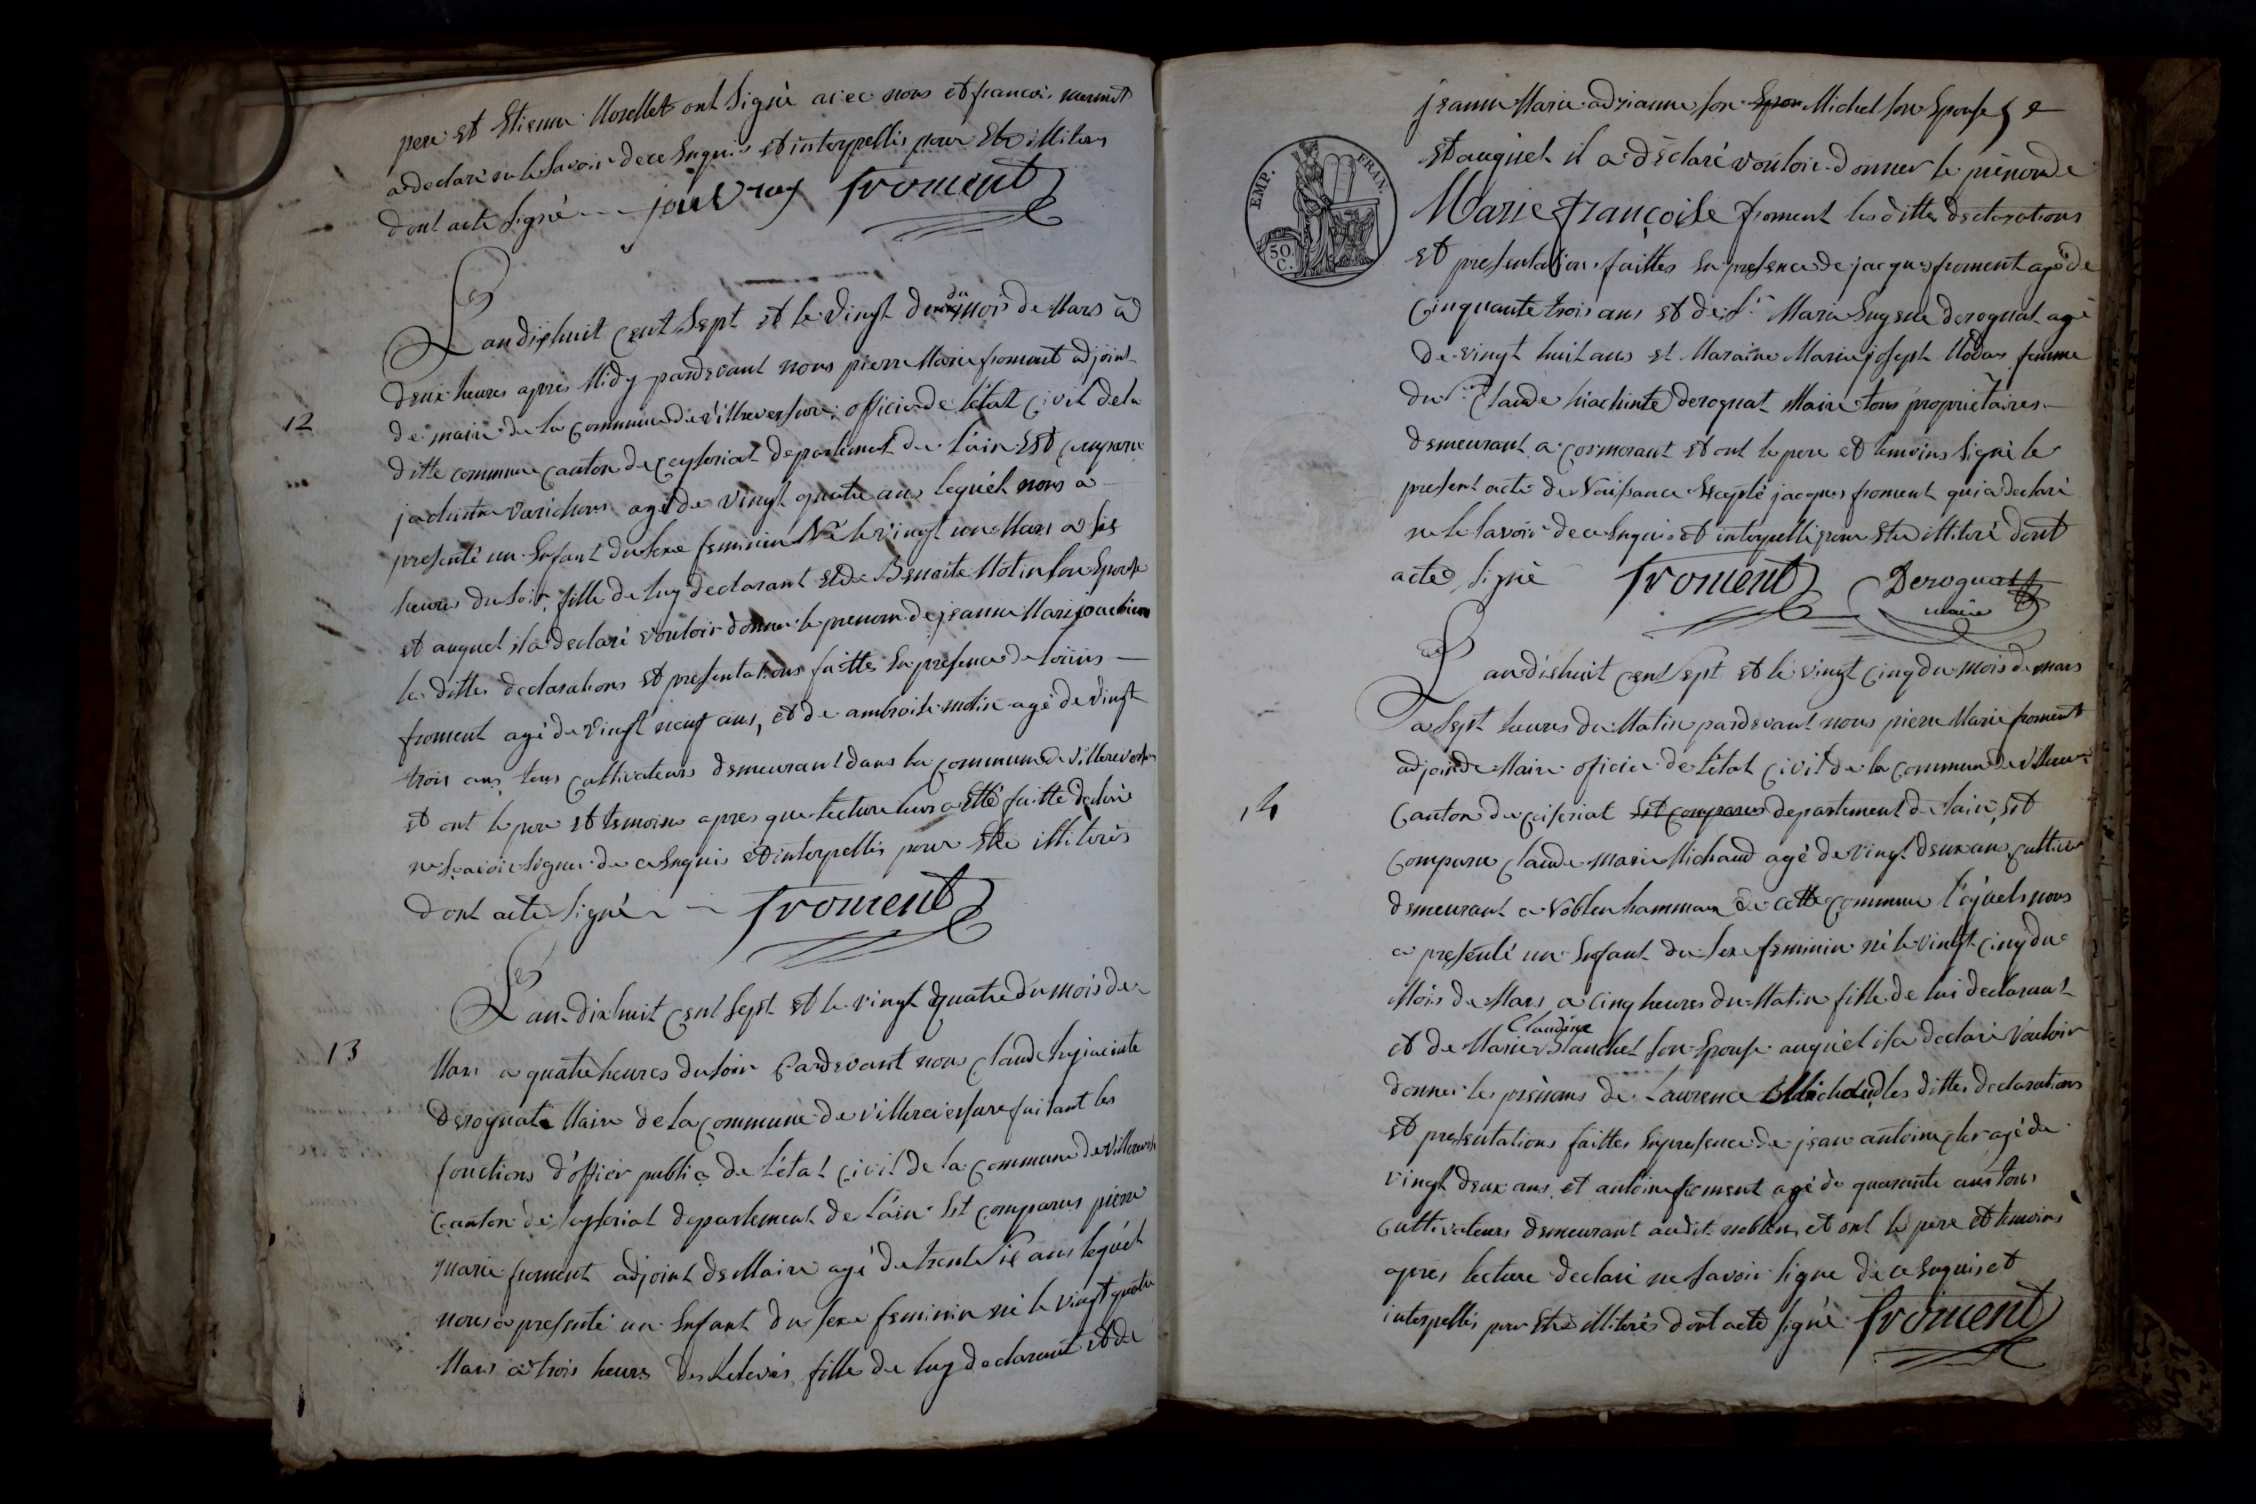 pere et Etienne Morellet ont signé avec nous et francois
a declaré ne le savoir de ce Enquis et interpellés pour Etre illiteres
dont acte signé - - - jouvray froment
L'an dixhuit cent sept et le vingt deux du mois de Mars à
deux heures apres Midy pardevant nous pierre Marie froment adjoint
12
de maire de la commune de villereversure officier de l'état civil de la
ditte commune canton de ceyseriat departement de l'ain Est comparu
jachinte varichon agé de vingt quatre ans lequel nous a
presenté un Enfant du sexe feminin Né le vingt un Mars a six
heures du soir, fille de luy declarant Et de Benoite Motin son Epouse
et auquel il a declaré vouloir donner le prenom de jeanne Marie joachime
les dittes declarations et presentations faittes En presence de
froment agé de vingt neuf ans, et de ambroise motin agé de vingt
trois ans, tous cultivateurs demeurant dans la commune de villereversure
et ont le pere et temoins apres que lecture leurs a Etté faitte declaré
ne scavoir signer de ce Enquis et interpellés pour Etre illiterés
dont acte signé - - froment
L'an dixhuit cent sept et le vingt quatre du mois de
13
Mars a quatre heures du soir Pardevant nous Claude hyjacinte
Derognat Maire de la commune de villereversure faisant les
fonctions d'officier public de l'état civil de la commune de villerevers
Canton de ceyseriat departement de l'ain Est comparus pierre
marie froment adjoint de Maire agé de trente six ans lequel
nous a presenté un Enfant du sexe feminin né le vingt quatre
Mars a trois heures des Relevés, fille de luy declarant et de
jeanne Marie adrianne son Epou Michel son Epouse
et auquel il a déclaré vouloir donner le prénom de
Marie françoise froment les dittes declarations
et presentation faittes En presence de jacques froment agé de
Cinquante trois ans et de Sr. Marie Eugene derognat agé
de vingt huit ans et Maraine Marie joseph femme
du Sr. Claude hiachinte derognat Maire tous propriétaires
demeurant a cormorant et ont le pere et temoins signé le
present acte de Naissance Excepté jacques froment qui a declaré
ne le savoir de ce Enquis et interpellé pour Etre illiteré dont
acte signé froment Derognat
maire
L'an dixhuit cent sept et le vingt cinq du mois de mars
a sept heures du Matin pardevant nous pierre Marie froment
adjoint de Maire officier de l'état civil de la commune de villerev
14
Canton de ceiseriat Est comparus departement de l'ain, Est
comparu claude marie Michaud agé de vingt deux ans, cultiv
demeurant a Noblen hammaux de cette commune lequels nous
a presenté un Enfant du sexe feminin né le vingt cinq du
Mois de Mars a cinq heures du Matin fille de lui declarant
et de Marie Claudine Blanchet son Epouse auquel il a declaré vouloir
donner les prénoms de Laurence Michaud les dittes declarations
et presentations faittes En presence de jean antoine agé de
vingt deux ans, et antoine froment agé de quarante ans tous
cultivateurs demeurant audit noblen, et ont le pere et temoins
apres lecture declaré ne savoir signe de ce Enquis et
interpellés pour Etre illiterés dont acte signé froment
EMP. FRAN.
50
C.